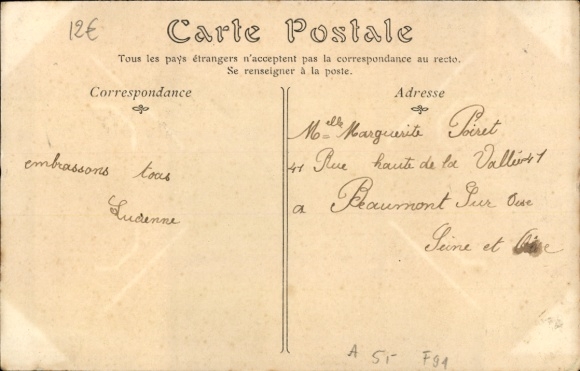 12€
Carte Postale
Tous les pays étrangers n'acceptent pas la correspondance au recto.
Se renseigner à la poste.
Correspondance
embrassons tous
Lucienne
Adresse
Melle Marguerite Poiret
41 Rue haute de la Vallée 41
a Beaumont Sur Oise
Seine et Oise
A 5- F91